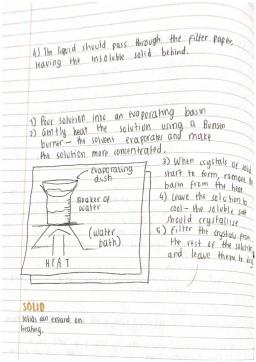 4) The liquid should pass through the filter paper,
leaving the insoluble solid behind.
1) Pour solution into an evaporating basin
2) Gently heat the solution using a Bunsen
burner – the solvent evaporates and make
the solution more concentrated.
Evaporating
dish
Beaker of
water
(water
bath)
HEAT
3) When crystals of solid
start to form, remove the
basin from the heat
4) Leave the solution to
cool – the soluble
should crystallise
5) Filter the crystals from
the rest of the solution
and leave them to dry
SOLID
Solids can expand on
heating.